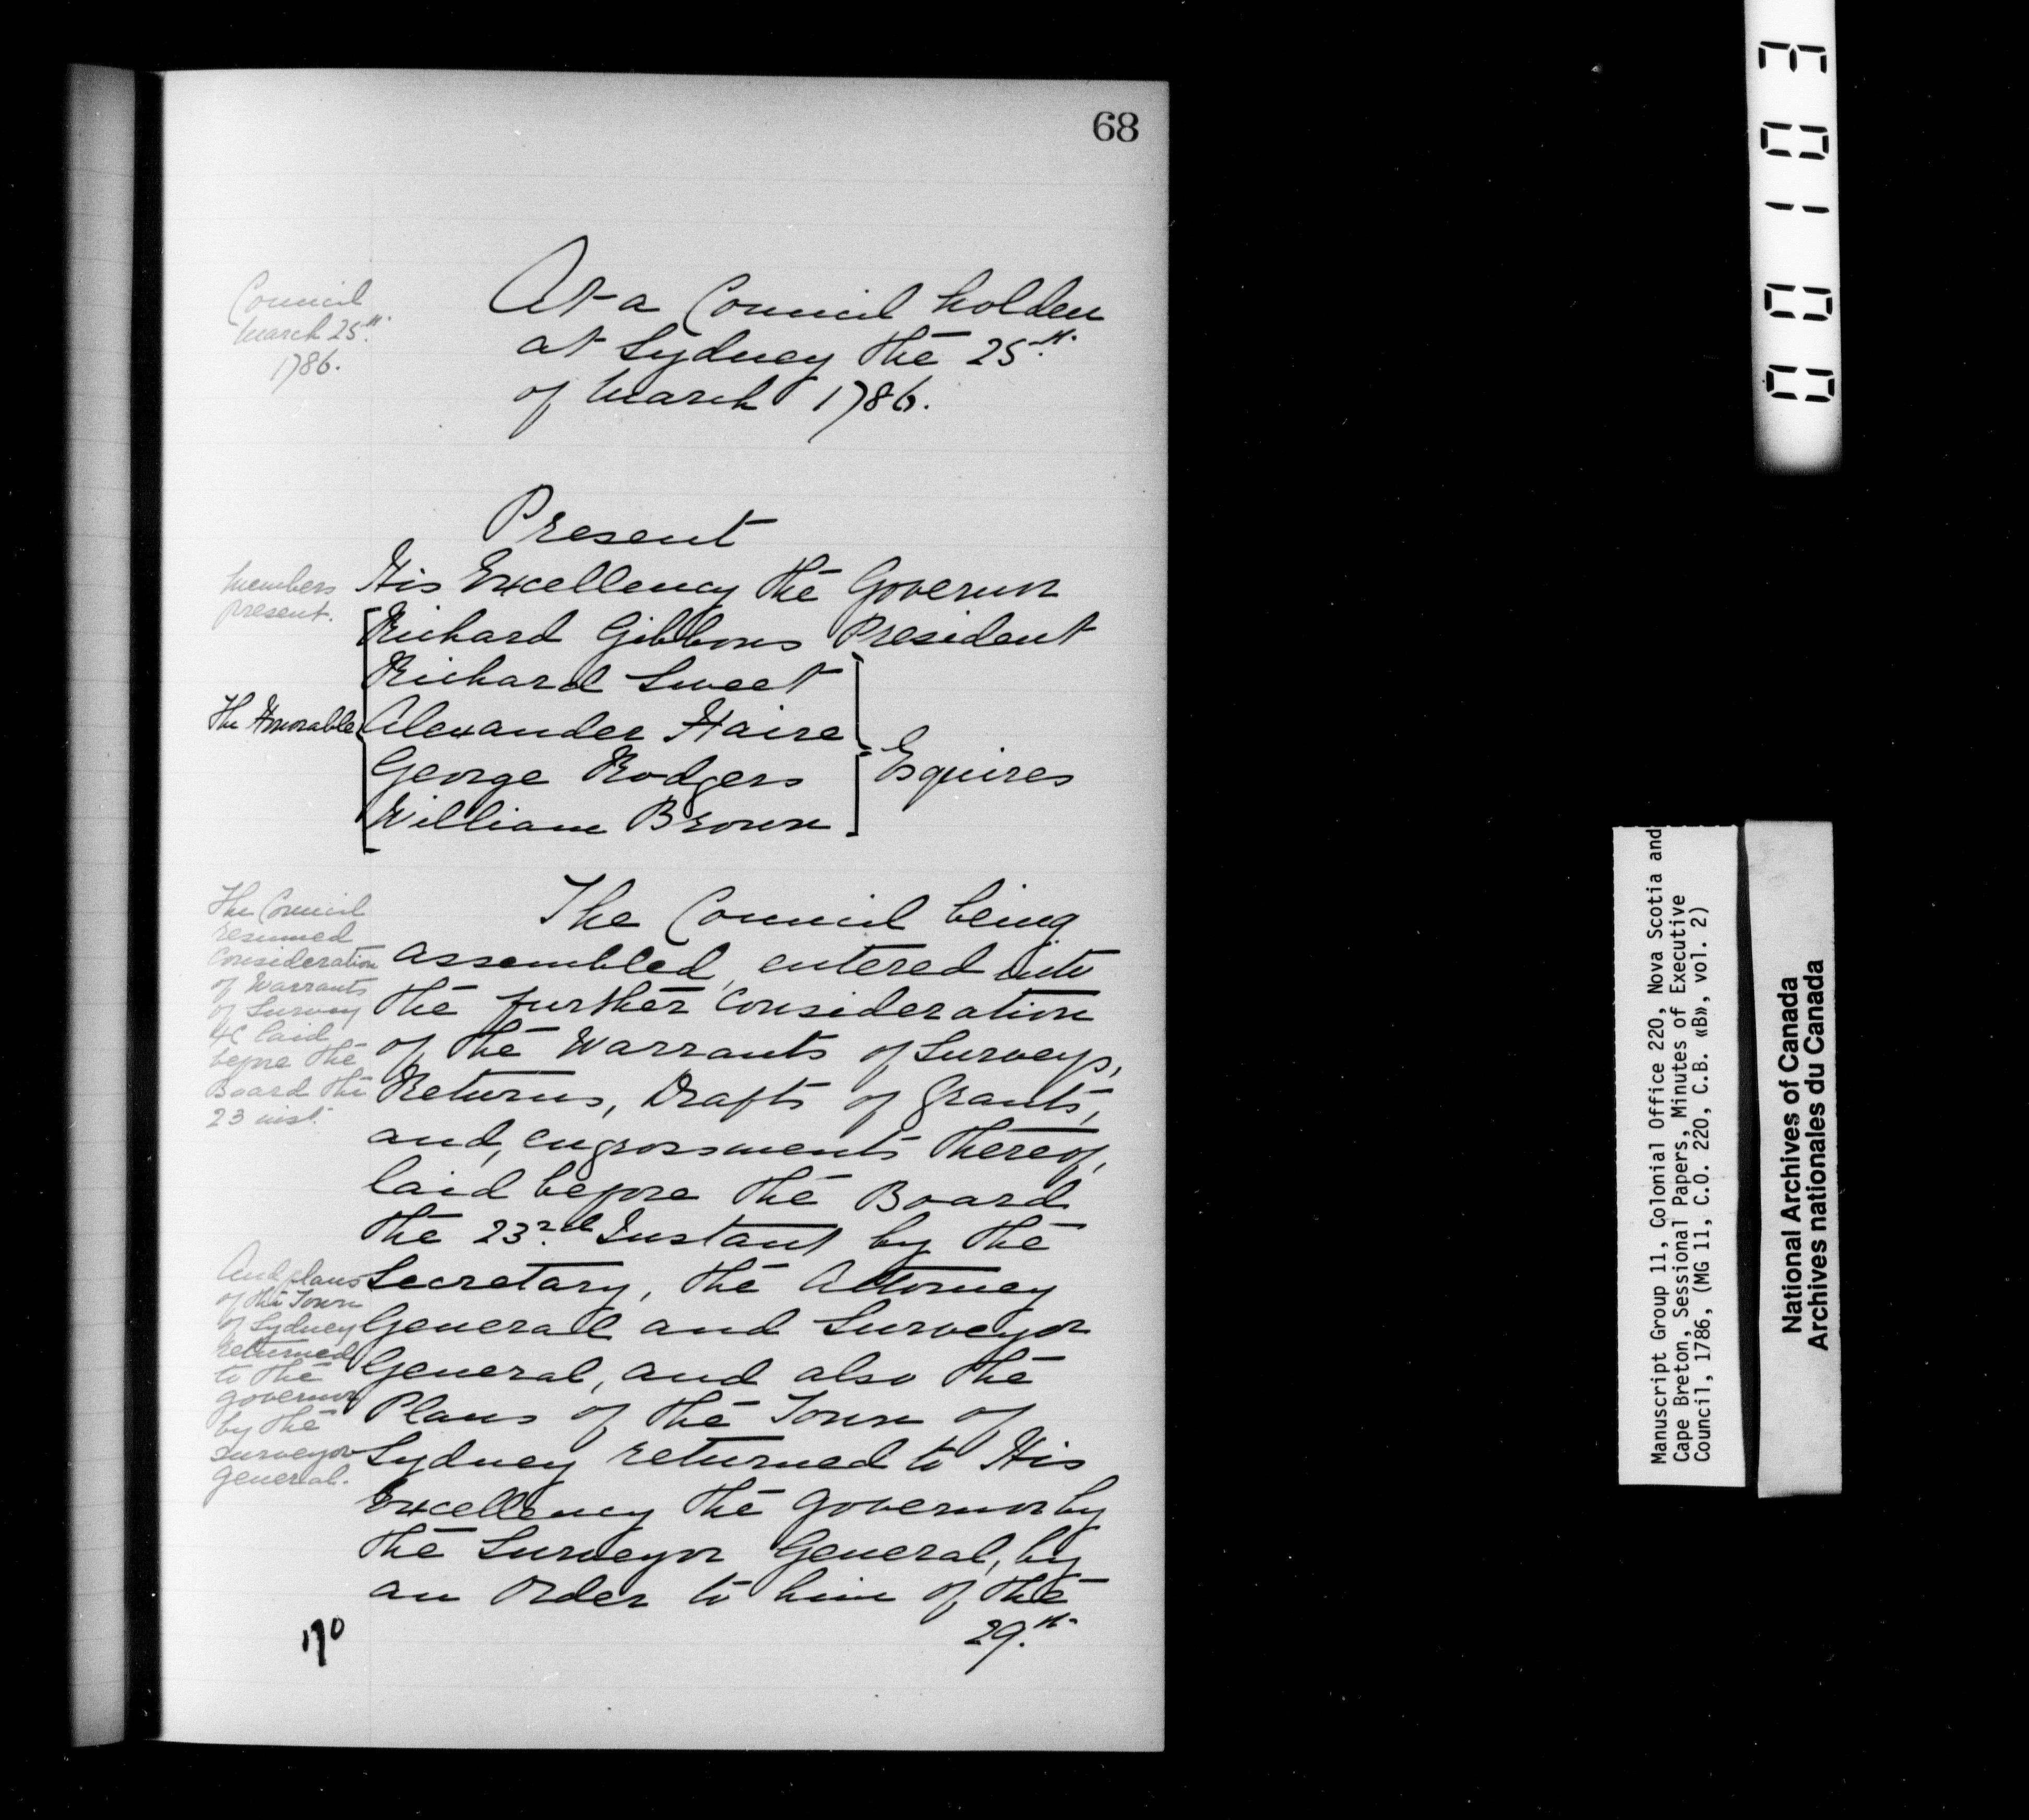 68
Council
March 25th.
1786.
At a Council holden
at Sydney the 25th.
of March 1786.
Present
Members
present.
His Excellency the Governor
Richard Gibbons President
Richard Sweet
The Honorable
Alexander Haire
George Rodgers
William Brown
Esquires
The Council
resumed
consideration
of Warrants
of Survey
&c laid
before the
Board the
23 inst.
The Council being
assembled, entered into
the further consideration
of the Warrants of Surveys,
Returns, Drafts of Grants,
and, engrossments thereof,
laid before the Board
the 23rd. Instant by the
Secretary, the Attorney
General and Surveyor
General, and also the
Plans of the Town of
Sydney returned to His
Excellency the Governor by
the Surveyor General, by
an Order to him of the
29th.
And plans
of the Town
of Sydney
returned
to the
governor
by the
surveyor
general.
170
00103
Manuscript Group 11, Colonial Office 220, Nova Scotia and
Cape Breton, Sessional Papers, Minutes of Executive
Council, 1786, (MG 11, C.O. 220, C.B. «B», vol. 2)
National Archives of Canada
Archives nationales du Canada